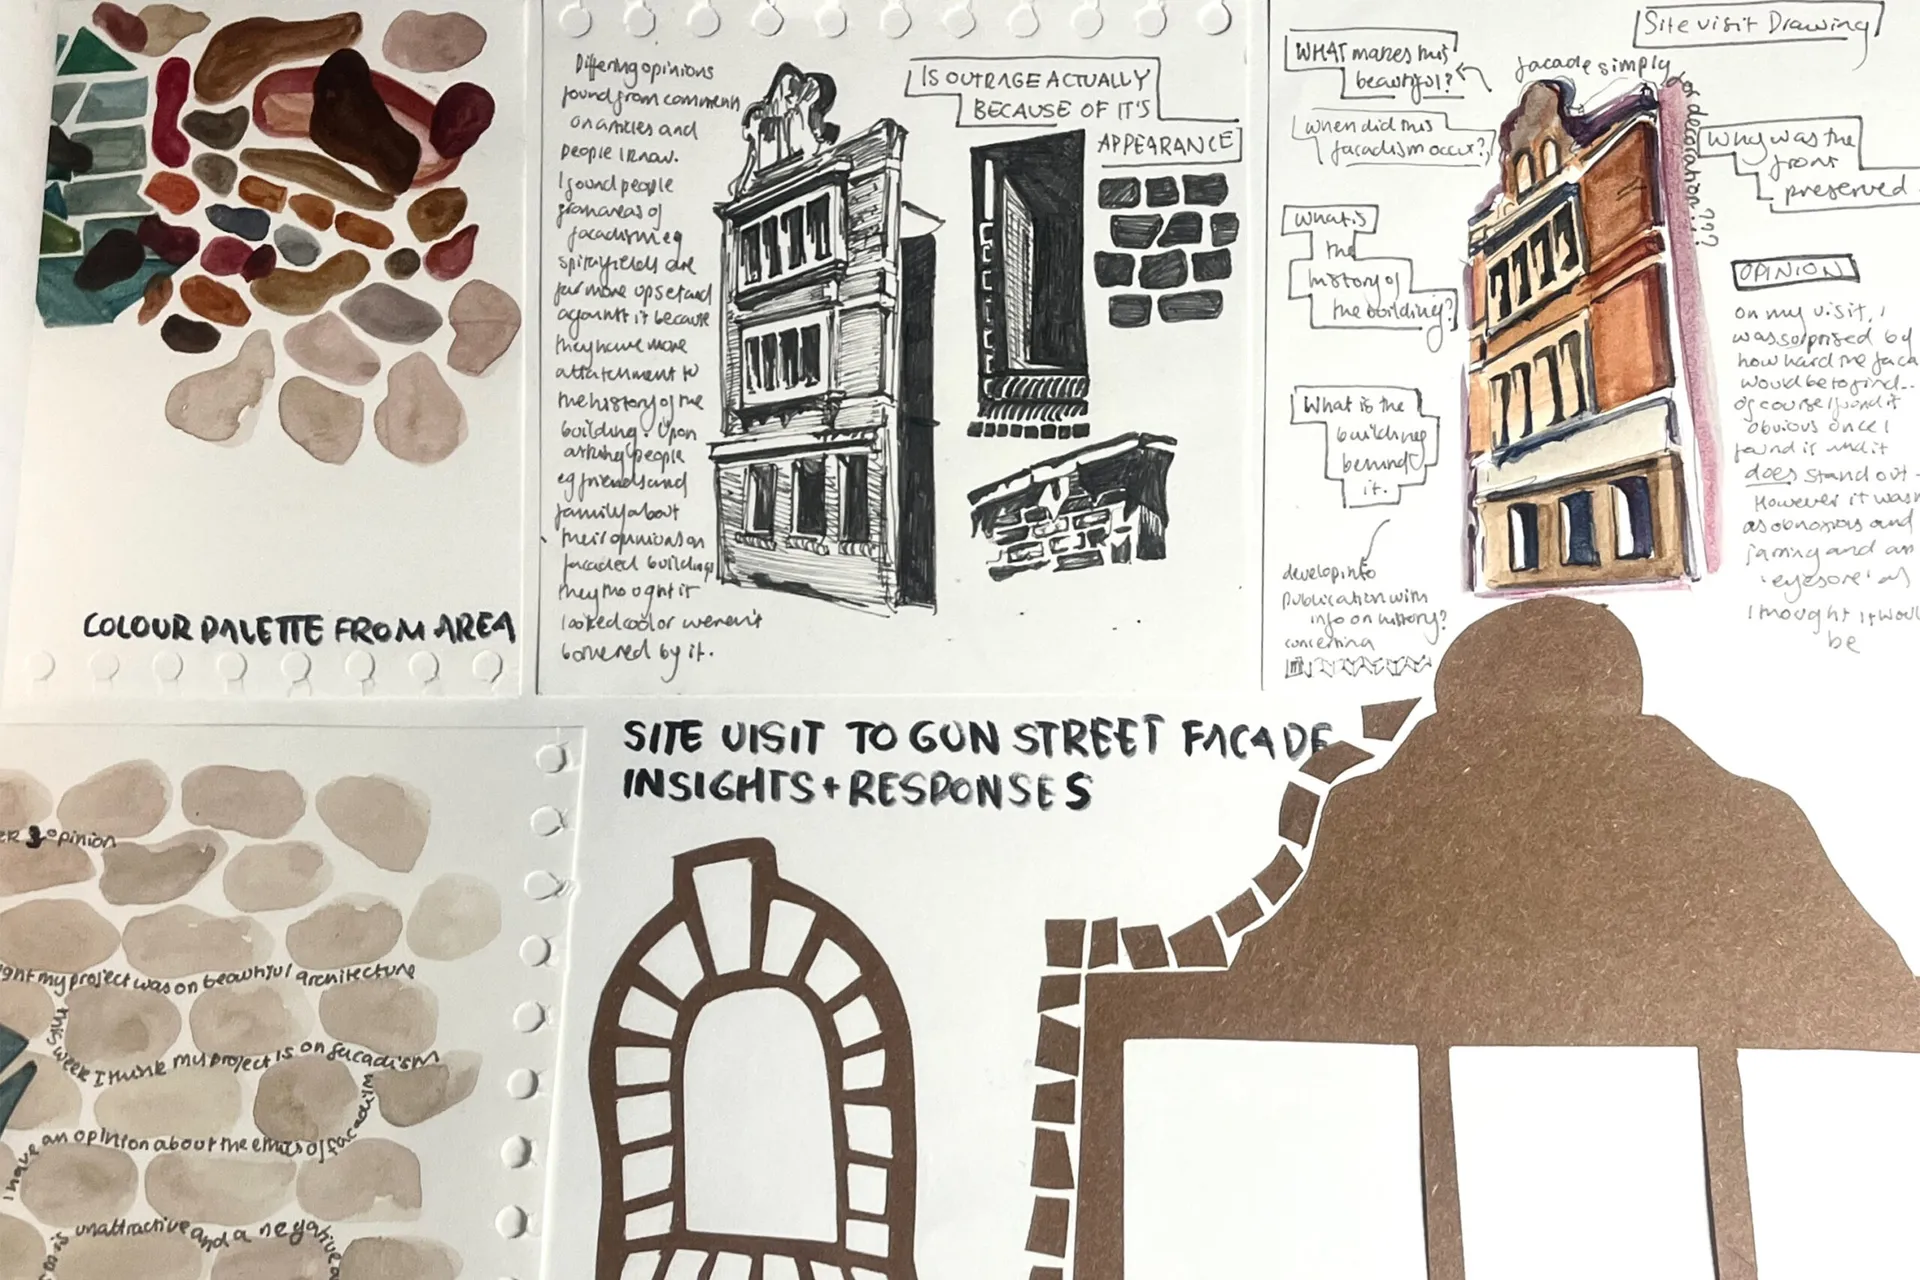 COLOUR PALETTE FROM AREA
Differing opinions
found from comments
on articles and
people I know.
I found people
from areas of
facadism eg
spitalfields are
far more upset and
against it because
they have more
attatchment to
the history of the
building. Upon
asking people
eg friends and
family about
their opinions on
facaded buildings
they thought it
looked cool or weren't
bothered by it.
IS OUTRAGE ACTUALLY
BECAUSE OF IT'S
APPEARANCE
Site visit Drawing
WHAT makes this
beautiful?
facade simply
for decoration???
when did this
facadism occur?
Why was the
front
preserved
what is
the
history of
the building?
What is the
building
behind
it.
develop into
publication with
info on history?
concerning
OPINION
on my visit, I
was surprised by
how hard the faca
would be to find...
of course I found it
obvious once I
found it and it
does stand out.
However it wasn
as obnoxious and
jarring and an
'eyesore' as
I thought it woul
be
SITE VISIT TO GUN STREET FACADE
INSIGHTS + RESPONSES
opinion
ght my project was on beautiful architecture
this week I think my project is on facadism
I have an opinion about the ethics of facadism
unattractive and a negative